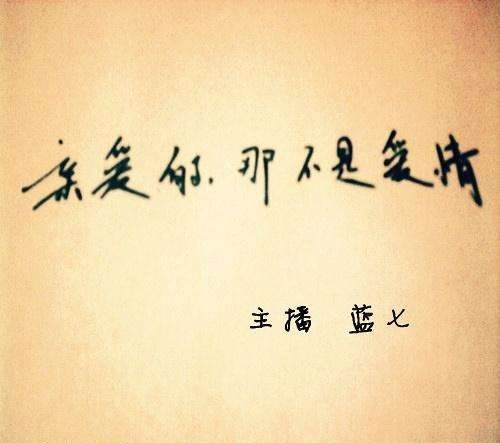 亲爱的.那不是爱情
主播 蓝七